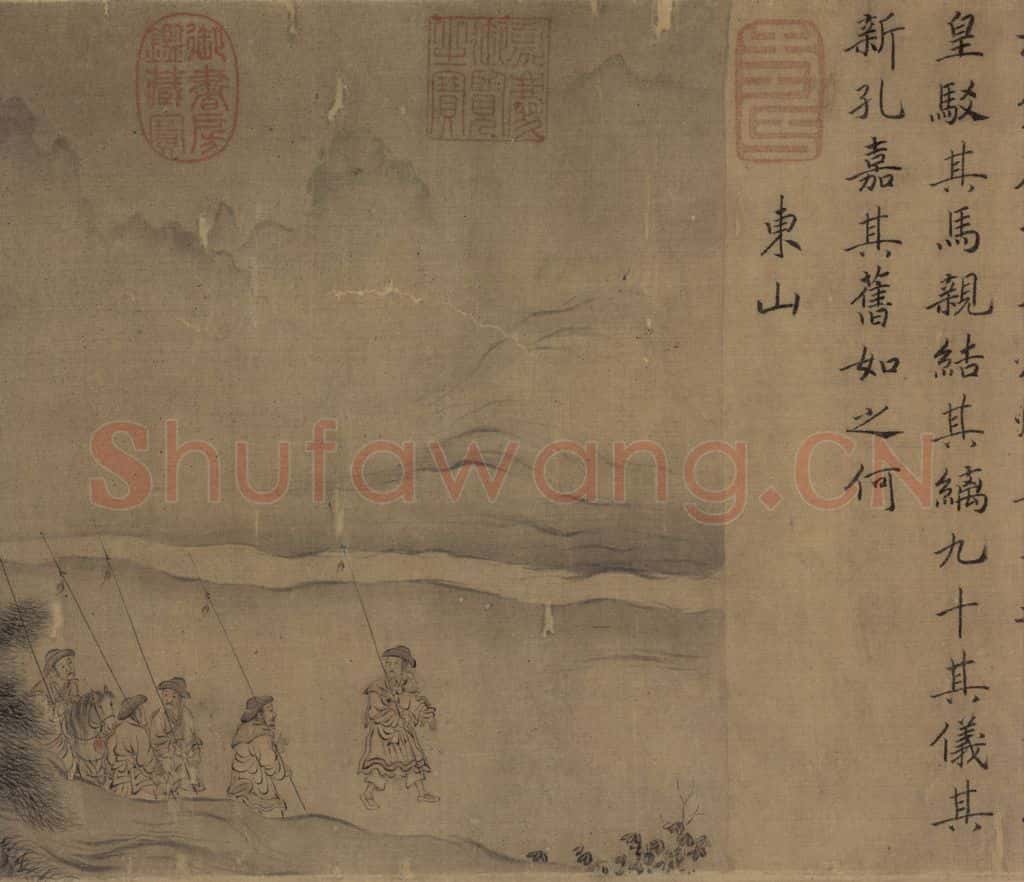 皇駁其馬親結其縭九十其儀其
新孔嘉其舊如之何
東山
嘉慶
御覽
之寶
御書房
鑑藏寶
Shufawang.CN